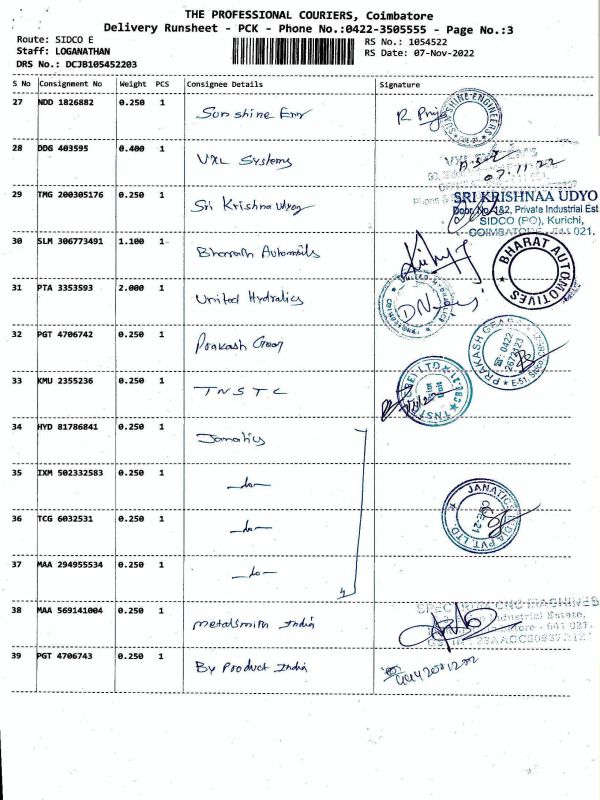 THE PROFESSIONAL COURIERS, Coimbatore
Delivery Runsheet - PCK - Phone No.:0422-3505555 - Page No.:3
Route: SIDCO E
RS No.: 1054522
Staff: LOGANATHAN
RS Date: 07-Nov-2022
DRS No.: DCJB105452203
S No Consignment No Weight PCS Consignee Details Signature
27 NDD 1826882 0.250 1 Sun shine Enr R Priya
SUN SHINE ENGINEERS
28 DDG 403595 0.400 1 VXL Systems
07.11.22
29 TMG 200305176 0.250 1 Sri Krishna udyog
SRI KRISHNAA UDYO
Door No. 182, Private Industrial Est
SIDCO (PO), Kurichi,
COIMBATORE - 641 021.
30 SLM 306773491 1.100 1 Bharath Automobils
BHARAT AUTOMOTIVES
31 PTA 3353593 2.000 1 United Hydralics
32 PGT 4706742 0.250 1 Prakash Gear
PRAKASH GEAR
0422
33 KMU 2355236 0.250 1 TNSTC
34 HYD 81786841 0.250 1 Janatics
35 IXM 502332583 0.250 1 -do-
36 TCG 6032531 0.250 1 -do-
JANATICS INDIA PVT LTD
37 MAA 294955534 0.250 1 -do-
38 MAA 569141004 0.250 1 metalsmith India
CNC MACHINES
Industrial Estate,
641 021.
39 PGT 4706743 0.250 1 By Product India